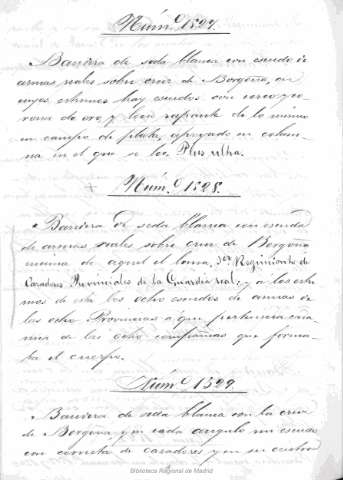 Núm.º 1527.
Bandera de seda blanca con escudo de
armas reales sobre cruz de Borgoña, en
cuyos extremos hay escudos con cerco y co-
rona de oro y león rapante de lo mismo
en campo de plata, apoyado en colum-
na en el que se lee, Plus ultra.
Núm.º 1528.
Bandera de seda blanca con escudo
de armas reales sobre cruz de Borgoña
encima de aquel el lema, 3er Regimiento de
Cazadores Provinciales de la Guardia real; y a los extre-
mos de esta los ocho escudos de armas de
las ocho Provincias a que pertenecia cada
una de las ocho compañias que forma-
ba el cuerpo.
Núm.º 1529
Bandera de seda blanca con la cruz
de Borgoña, y en cada angulo un escudo
con corneta de cazadores y en su centro
Biblioteca Regional de Madrid